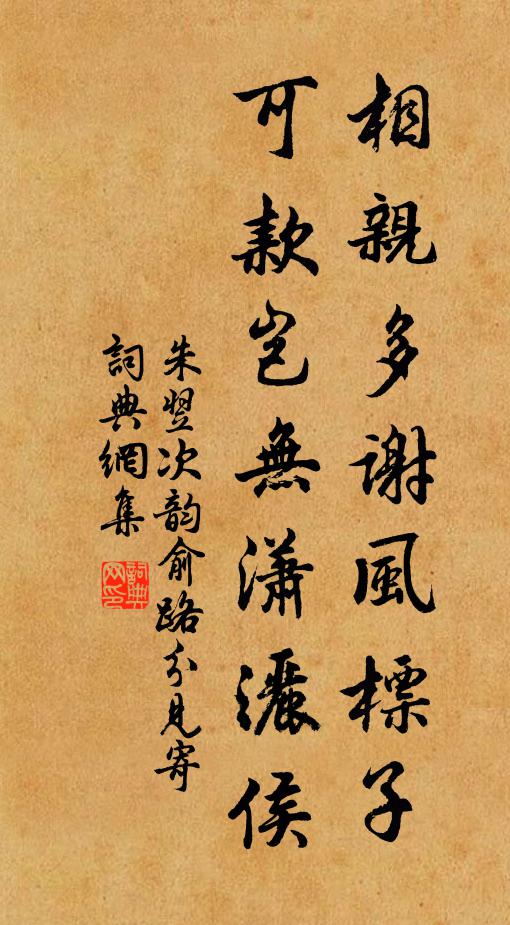 相親多謝風標子
可款豈無瀟灑侯
朱翌次韵俞路分見寄
詞典網集
詞典網印